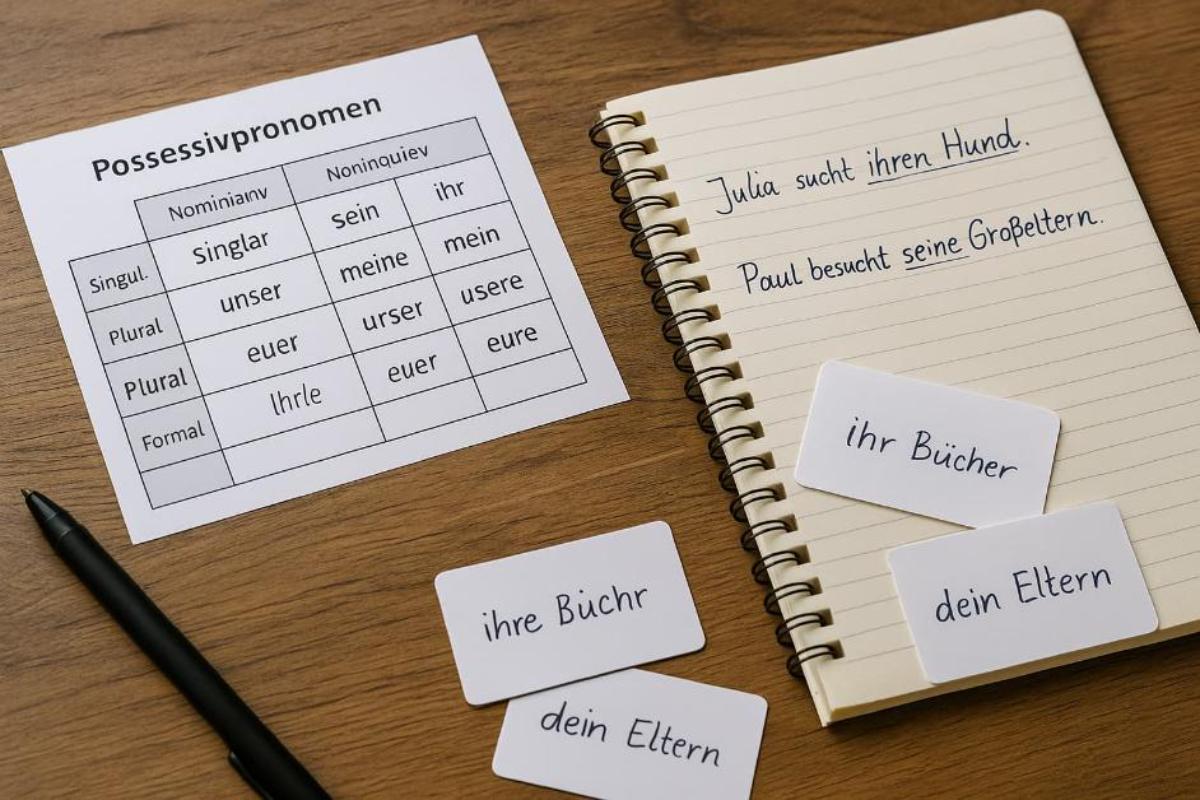 Possessivpronomen
Nominianv Noninquiev
Singul. singlar sein ihr
Plural unser meine mein
Plural euer urser usere
Formal Ihrle euer eure
Julia sucht ihren Hund.
Paul besucht seine Großeltern.
ihr Bücher
dein Eltern
ihre Büchr
dein Eltern